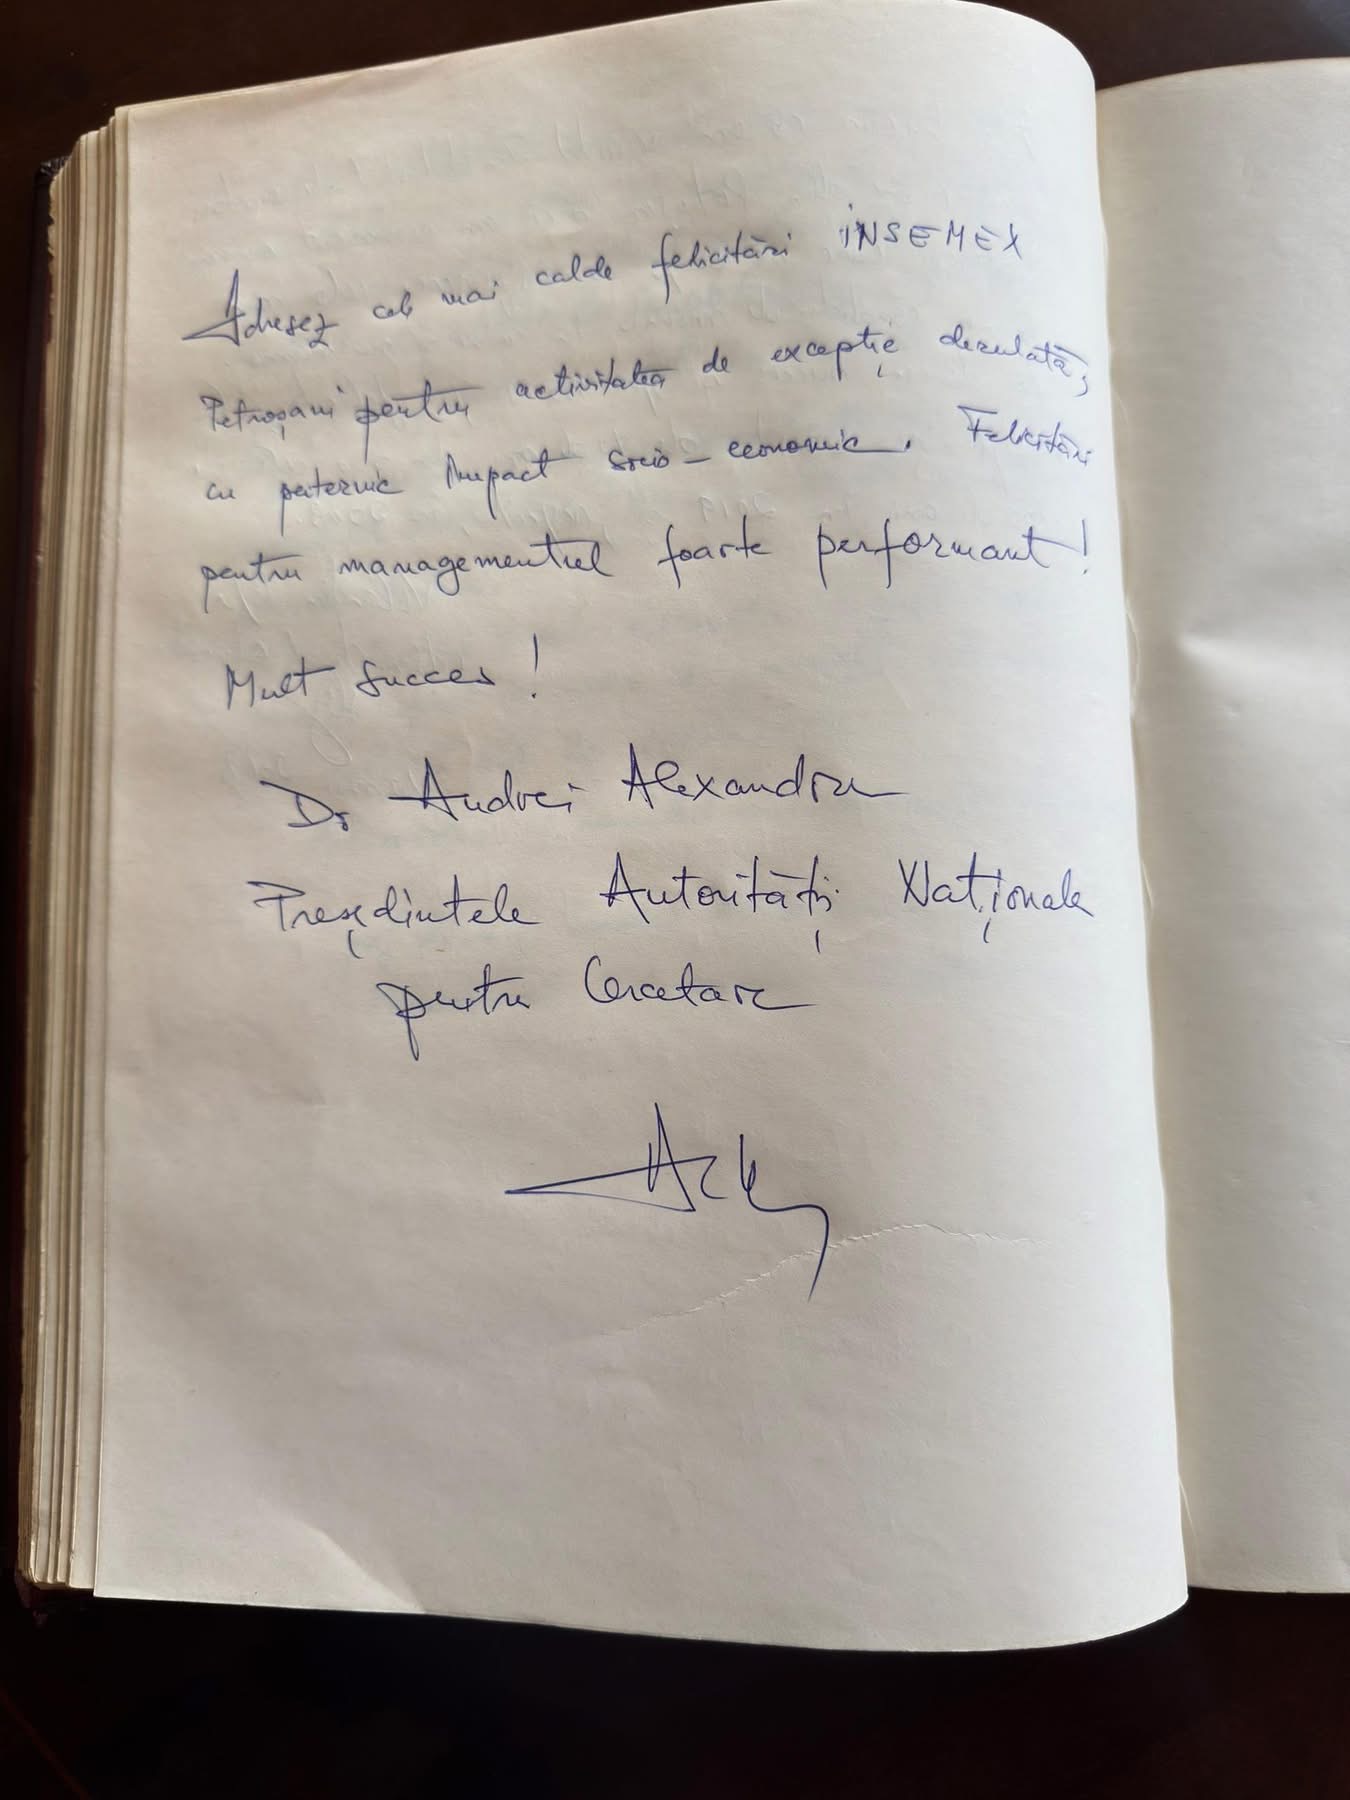 Adresez cele mai calde felicitări INSEMEX
Petroșani pentru activitatea de excepție derulată,
cu puternic impact socio-economic. Felicitări
pentru managementul foarte performant!
Mult succes!
Dr Andrei Alexandru
Președintele Autorității Naționale
pentru Cercetare